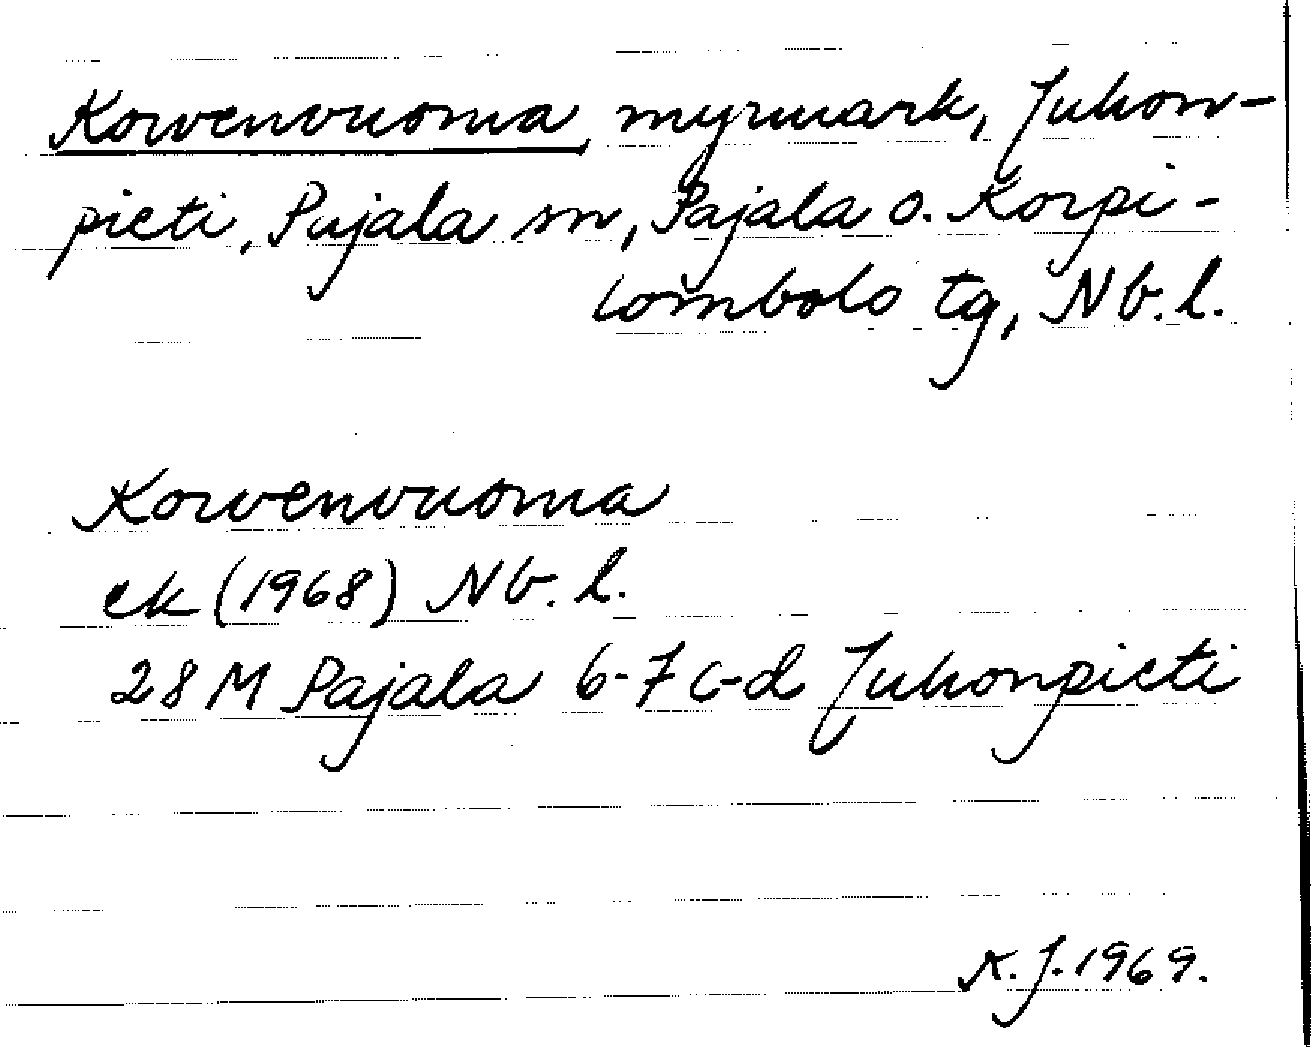 Korvenvuoma, myrmark, Juhon-
pieti, Pajala sn, Pajala o. Korpi-
lombolo tg, Nb. l.
Korvenvuoma
ek (1968) Nb. l.
28 M Pajala 6-7 c-d Juhonpieti
K. J. 1969.